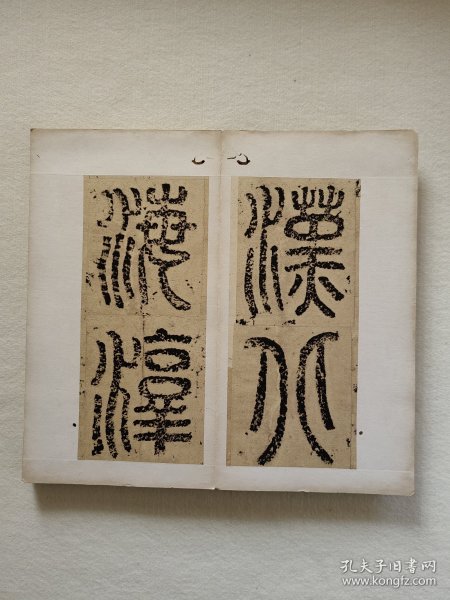 漢北
海淳
孔夫子旧书网
www.kongfz.com